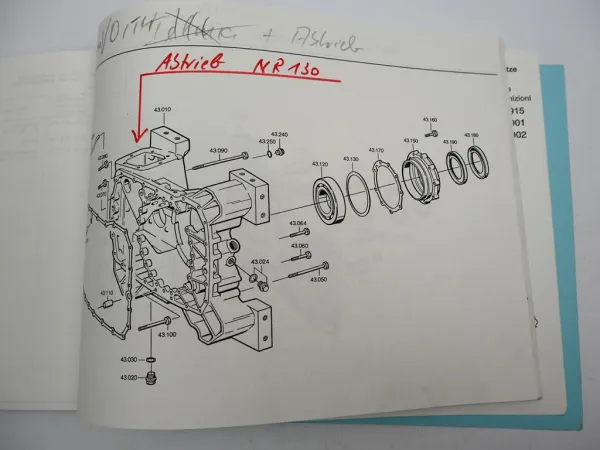 + Abtrieb
Abtrieb NR 130
43.010
43.240
43.250
43.090
43.160
43.150
43.170
43.190
43.180
43.130
43.120
43.070
43.064
43.060
43.024
43.050
43.110
43.100
43.030
43.020
tze
nizioni
915
901
002